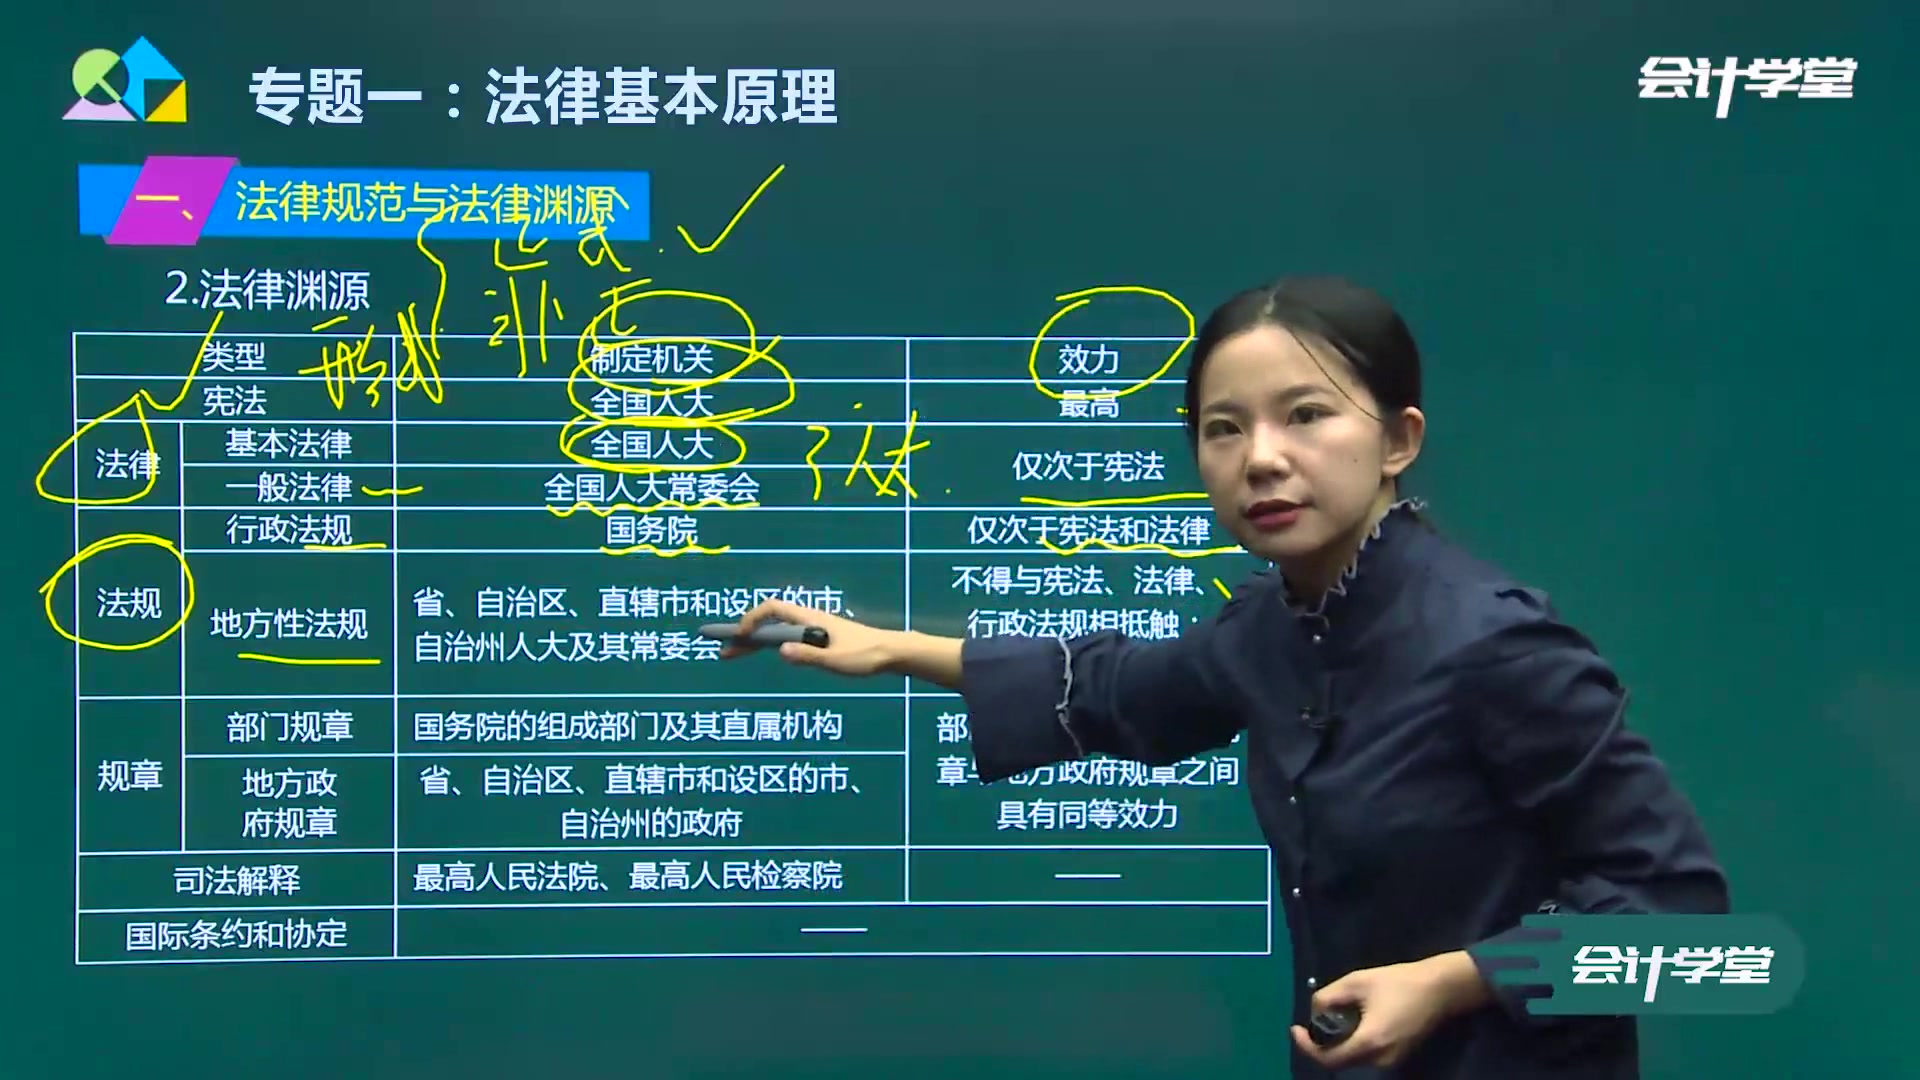 专题一：法律基本原理
会计学堂
一、法律规范与法律渊源
2.法律渊源
正式
非正
形式
类型 制定机关 效力
宪法 全国人大 最高
法律 基本法律 全国人大 仅次于宪法
一般法律 全国人大常委会
行政法规 国务院 仅次于宪法和法律
法规 地方性法规 省、自治区、直辖市和设区的市、
自治州人大及其常委会
不得与宪法、法律、
行政法规相抵触；
规章 部门规章 国务院的组成部门及其直属机构
地方政
府规章
省、自治区、直辖市和设区的市、
自治州的政府
部
章与地方政府规章之间
具有同等效力
司法解释 最高人民法院、最高人民检察院 ——
国际条约和协定 ——
会计学堂